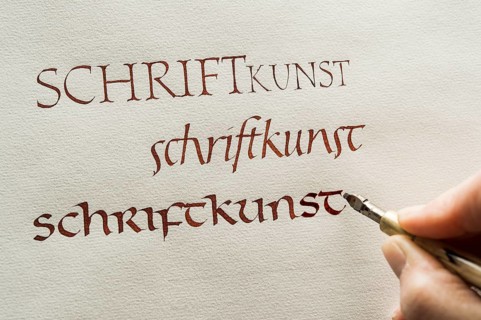 SCHRIFTKUNST
schriftkunst
schriftkunst